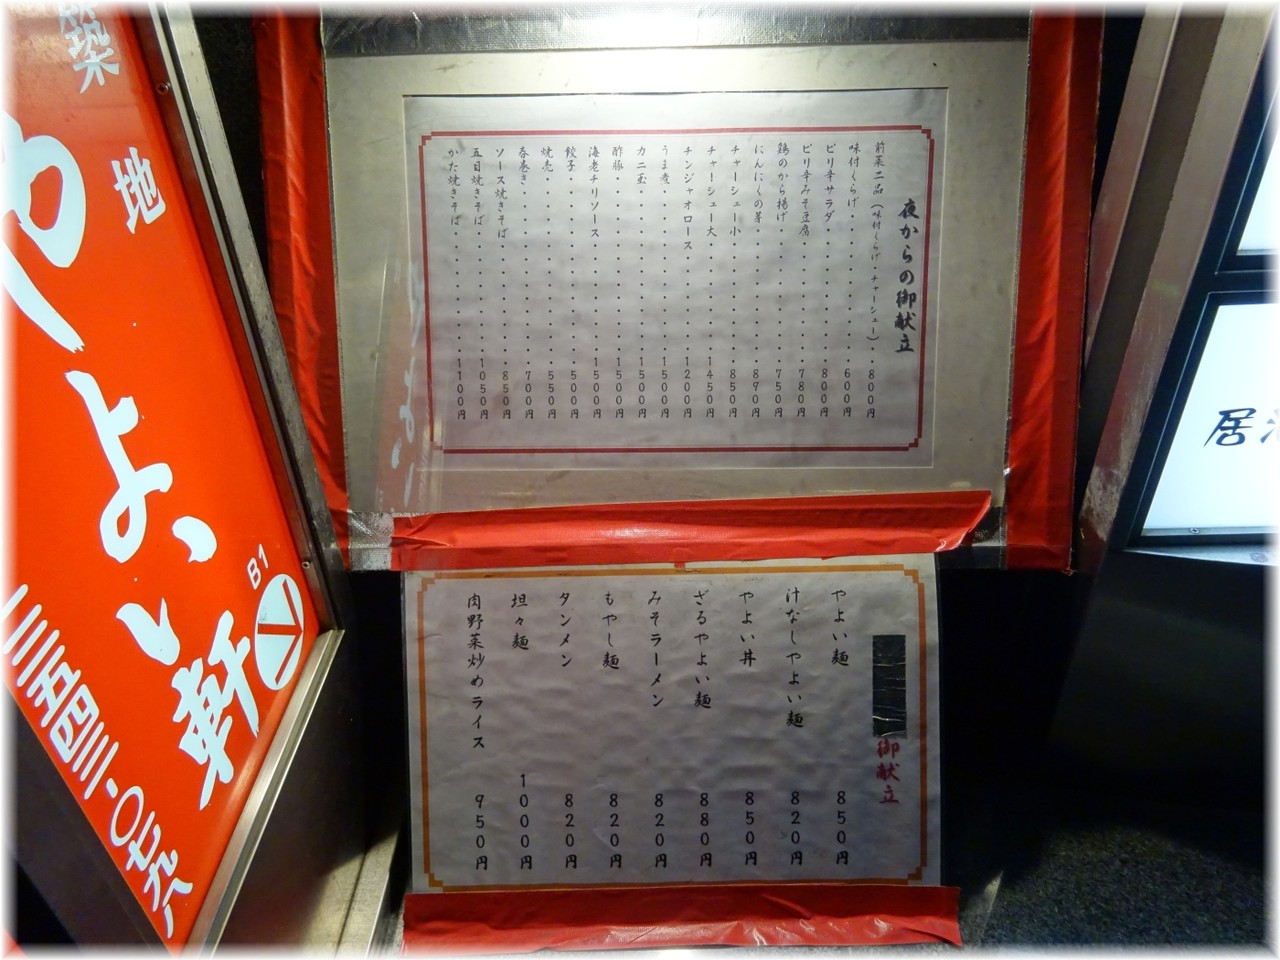 夜からの御献立
前菜二品(味付くらげ・チャーシュー)・800円
味付くらげ・・・・・・・・・・・・600円
ピリ辛サラダ・・・・・・・・・・・800円
ピリ辛みそ豆腐・・・・・・・・・・780円
鶏のから揚げ・・・・・・・・・・・750円
にんにくの芽・・・・・・・・・・・890円
チャーシュー小・・・・・・・・・・850円
チャーシュー大・・・・・・・・・・1450円
チンジャオロース・・・・・・・・・1200円
うま煮・・・・・・・・・・・・・・1500円
カニ玉・・・・・・・・・・・・・・1500円
酢豚・・・・・・・・・・・・・・・1500円
海老チリソース・・・・・・・・・・1500円
餃子・・・・・・・・・・・・・・・500円
焼売・・・・・・・・・・・・・・・550円
春巻き・・・・・・・・・・・・・・700円
ソース焼きそば・・・・・・・・・・850円
五目焼きそば・・・・・・・・・・・1050円
かた焼きそば・・・・・・・・・・・1100円
御献立
やよい麺 850円
汁なしやよい麺 820円
やよい丼 850円
ざるやよい麺 880円
みそラーメン 820円
もやし麺 820円
タンメン 820円
坦々麺 1000円
肉野菜炒めライス 950円
地
やよい軒
B1
三五四三-〇七九八
居